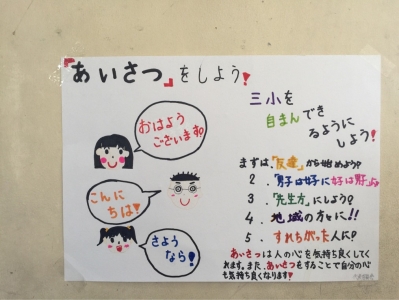 「あいさつ」をしよう!
おはよう
ございます!
こんに
ちは!
さよう
なら!
三小を
自まんでき
るようにしよう!
まずは「友達」から始めよう?
2.「男子は好に好は男」に
3.「先生方」にしよう!
4.地域の方々に!!
5.すれちがった人に?
あいさつは人の心を気持ち良くしてく
れます。また、あいさつをすることで自分の心
も気持ち良くなります?